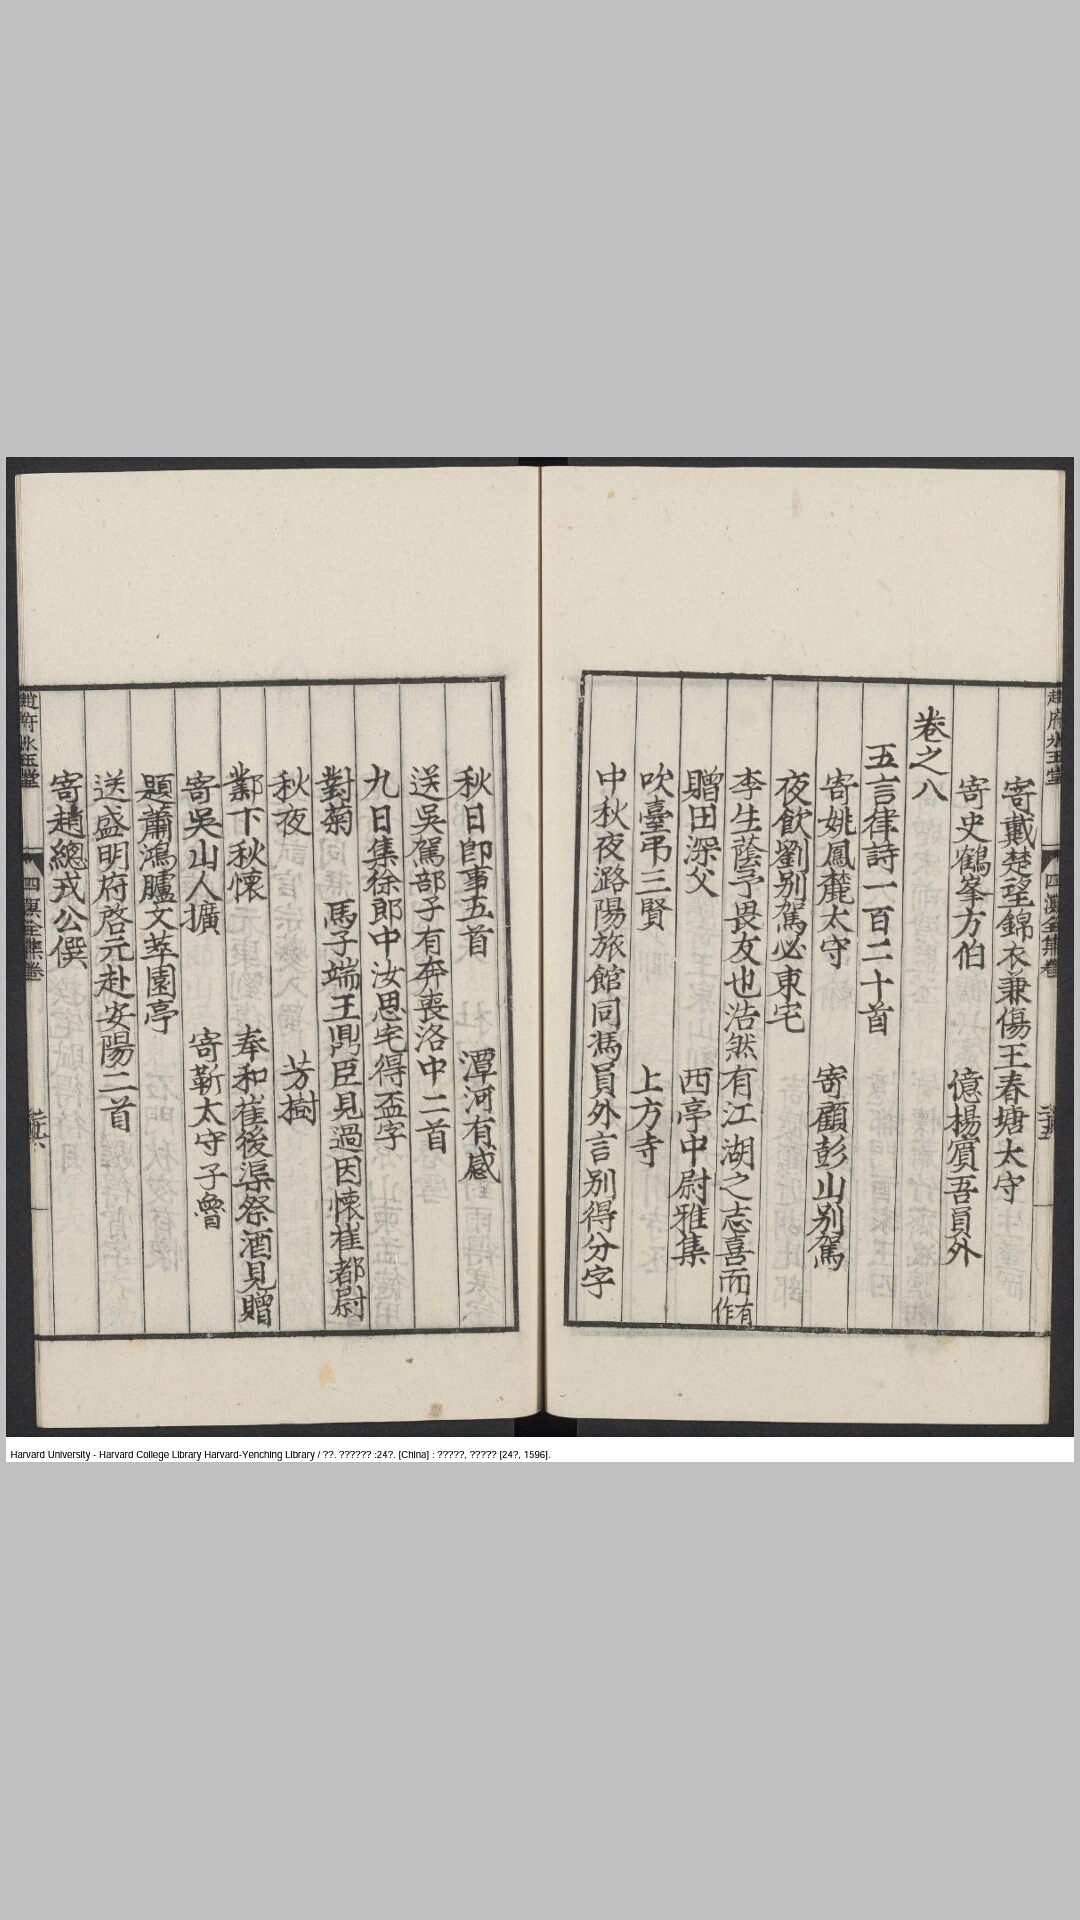 趙府冰玉堂
四溟全集卷
寄戴楚望錦衣兼傷王春塘太守
寄史鶴峯方伯 億楊賓吾員外
卷之八
五言律詩一百二十首
寄姚鳳麓太守 寄顧彭山別駕
夜飲劉別駕必東宅
李生蔭予畏友也浩然有江湖之志喜而有作
贈田深父 西亭中尉雅集
吹臺弔三賢 上方寺
中秋夜潞陽旅館同馮員外言別得分字
秋日卽事五首 潭河有感
送吳駕部子有奔喪洛中二首
九日集徐郎中汝思宅得盃字
對菊 馬子端王鼎臣見過因懷崔都尉
秋夜 芳樹
鄴下秋懷 奉和崔後渠祭酒見贈
寄吳山人擴 寄靳太守子曾
題蕭鴻臚文萃園亭
送盛明府啓元赴安陽二首
寄趙總戎公僎
趙府冰玉堂
四溟全集卷
Harvard University - Harvard College Library Harvard-Yenching Library / ??. ?????? :24?. [China] : ?????, ????? [24?, 1596].